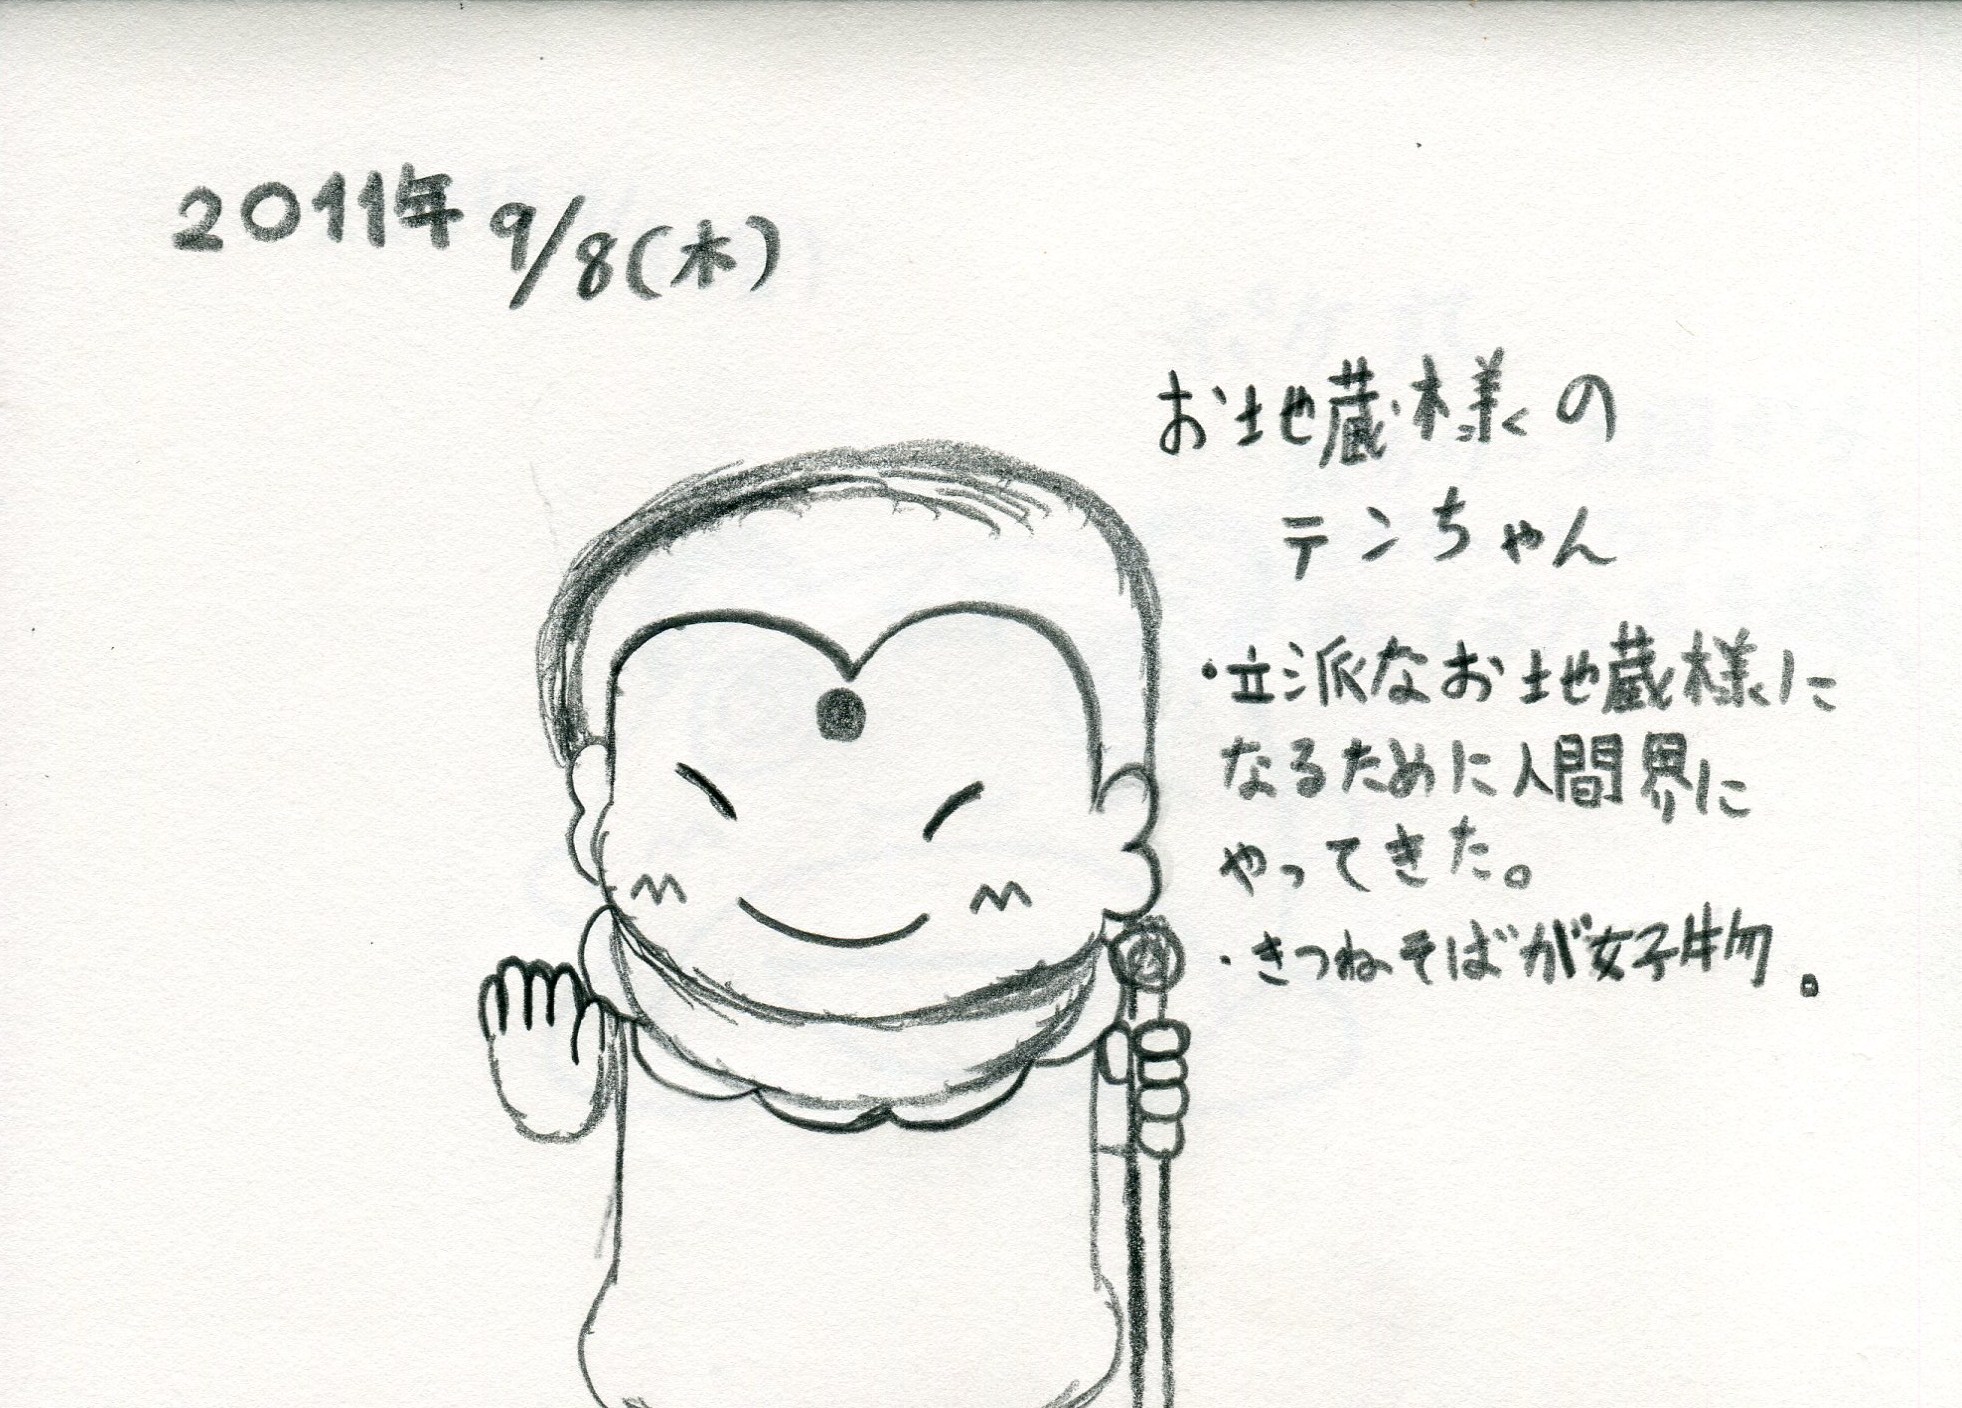 2011年 9/8(木)
お地蔵様の
テンちゃん
・立派なお地蔵様に
なるために人間界に
やってきた。
・きつねそばが好物。